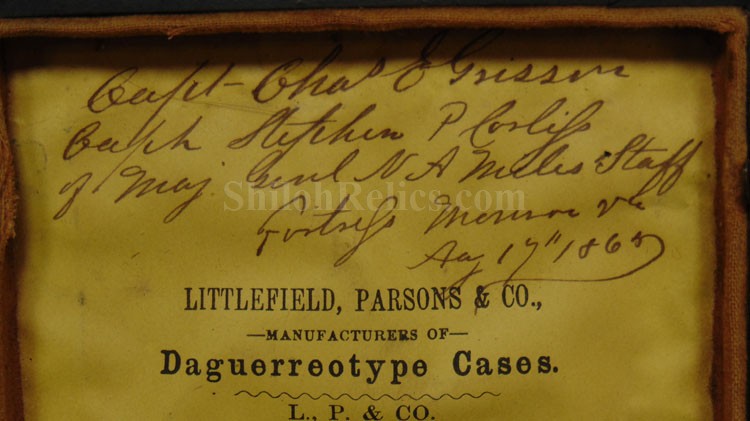 Capt Chas E Grisson
Capt Stephen P Corliss
of Maj Genl N A Miles Staff
ShilohRelics.com
Fortress Monroe Va
Aug 17" 1865
LITTLEFIELD, PARSONS & CO.,
—MANUFACTURERS OF—
Daguerreotype Cases.
L., P. & CO.